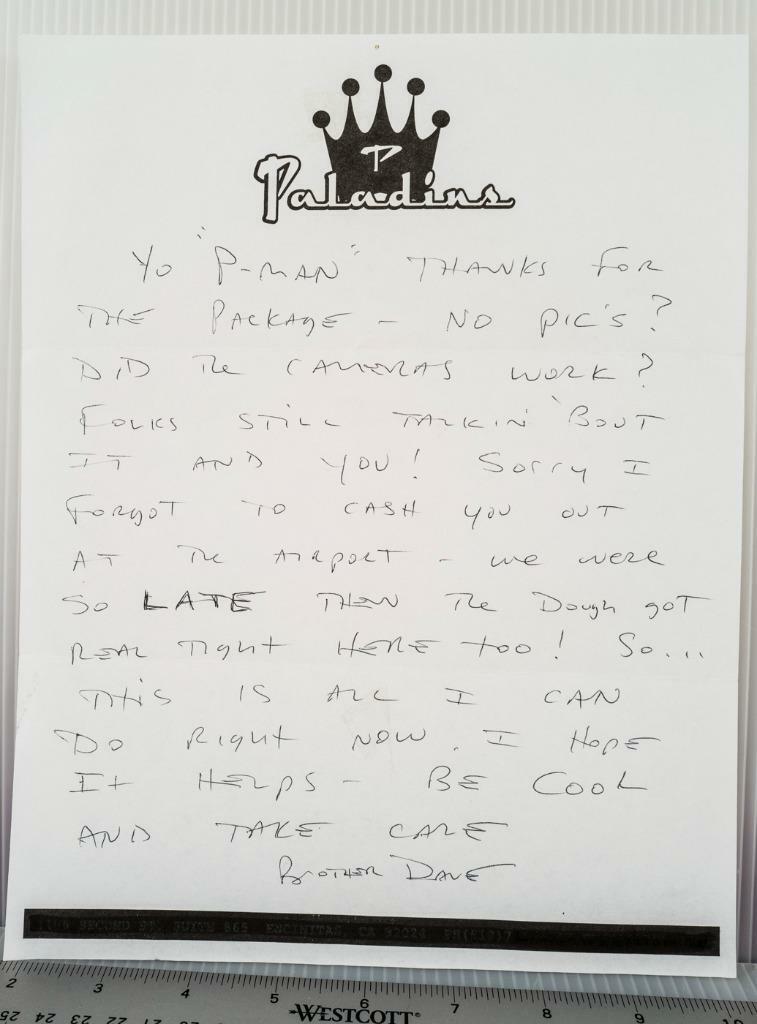 P
Paladins
Yo "P-MAN" THANKS FOR
THE PACKAGE - NO PIC'S?
DID The CAMERAS WORK?
FOLKS STILL TALKIN 'BOUT
IT AND YOU! Sorry I
Forgot TO CASH you OUT
AT The AIRPORT - we were
So LATE THEN The Dough goT
REAL TIGHT HERE too! So...
THIS IS ALL I CAN
Do Right NOW. I HopE
It HELPS - BE COOL
AND TAKE CARE
BROTHER DAVE
SECOND ST. SUITE ENCINITAS, CA 92024
2 3 4 5 6 7 8 9 10
25 24 23 22 21 20
WESTCOTT